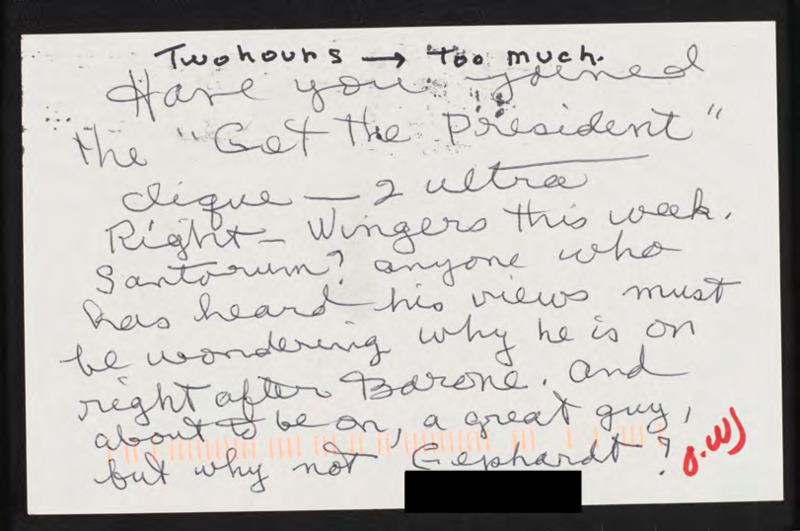 Two hours → too much.
Have you joined
the "Get the President"
clique — 2 ultra
Right-Wingers this week.
Santorum? anyone who
has heard his views must
be wondering why he is on
right after Barone. And
about to be on, a great guy,
but why not Gephardt?